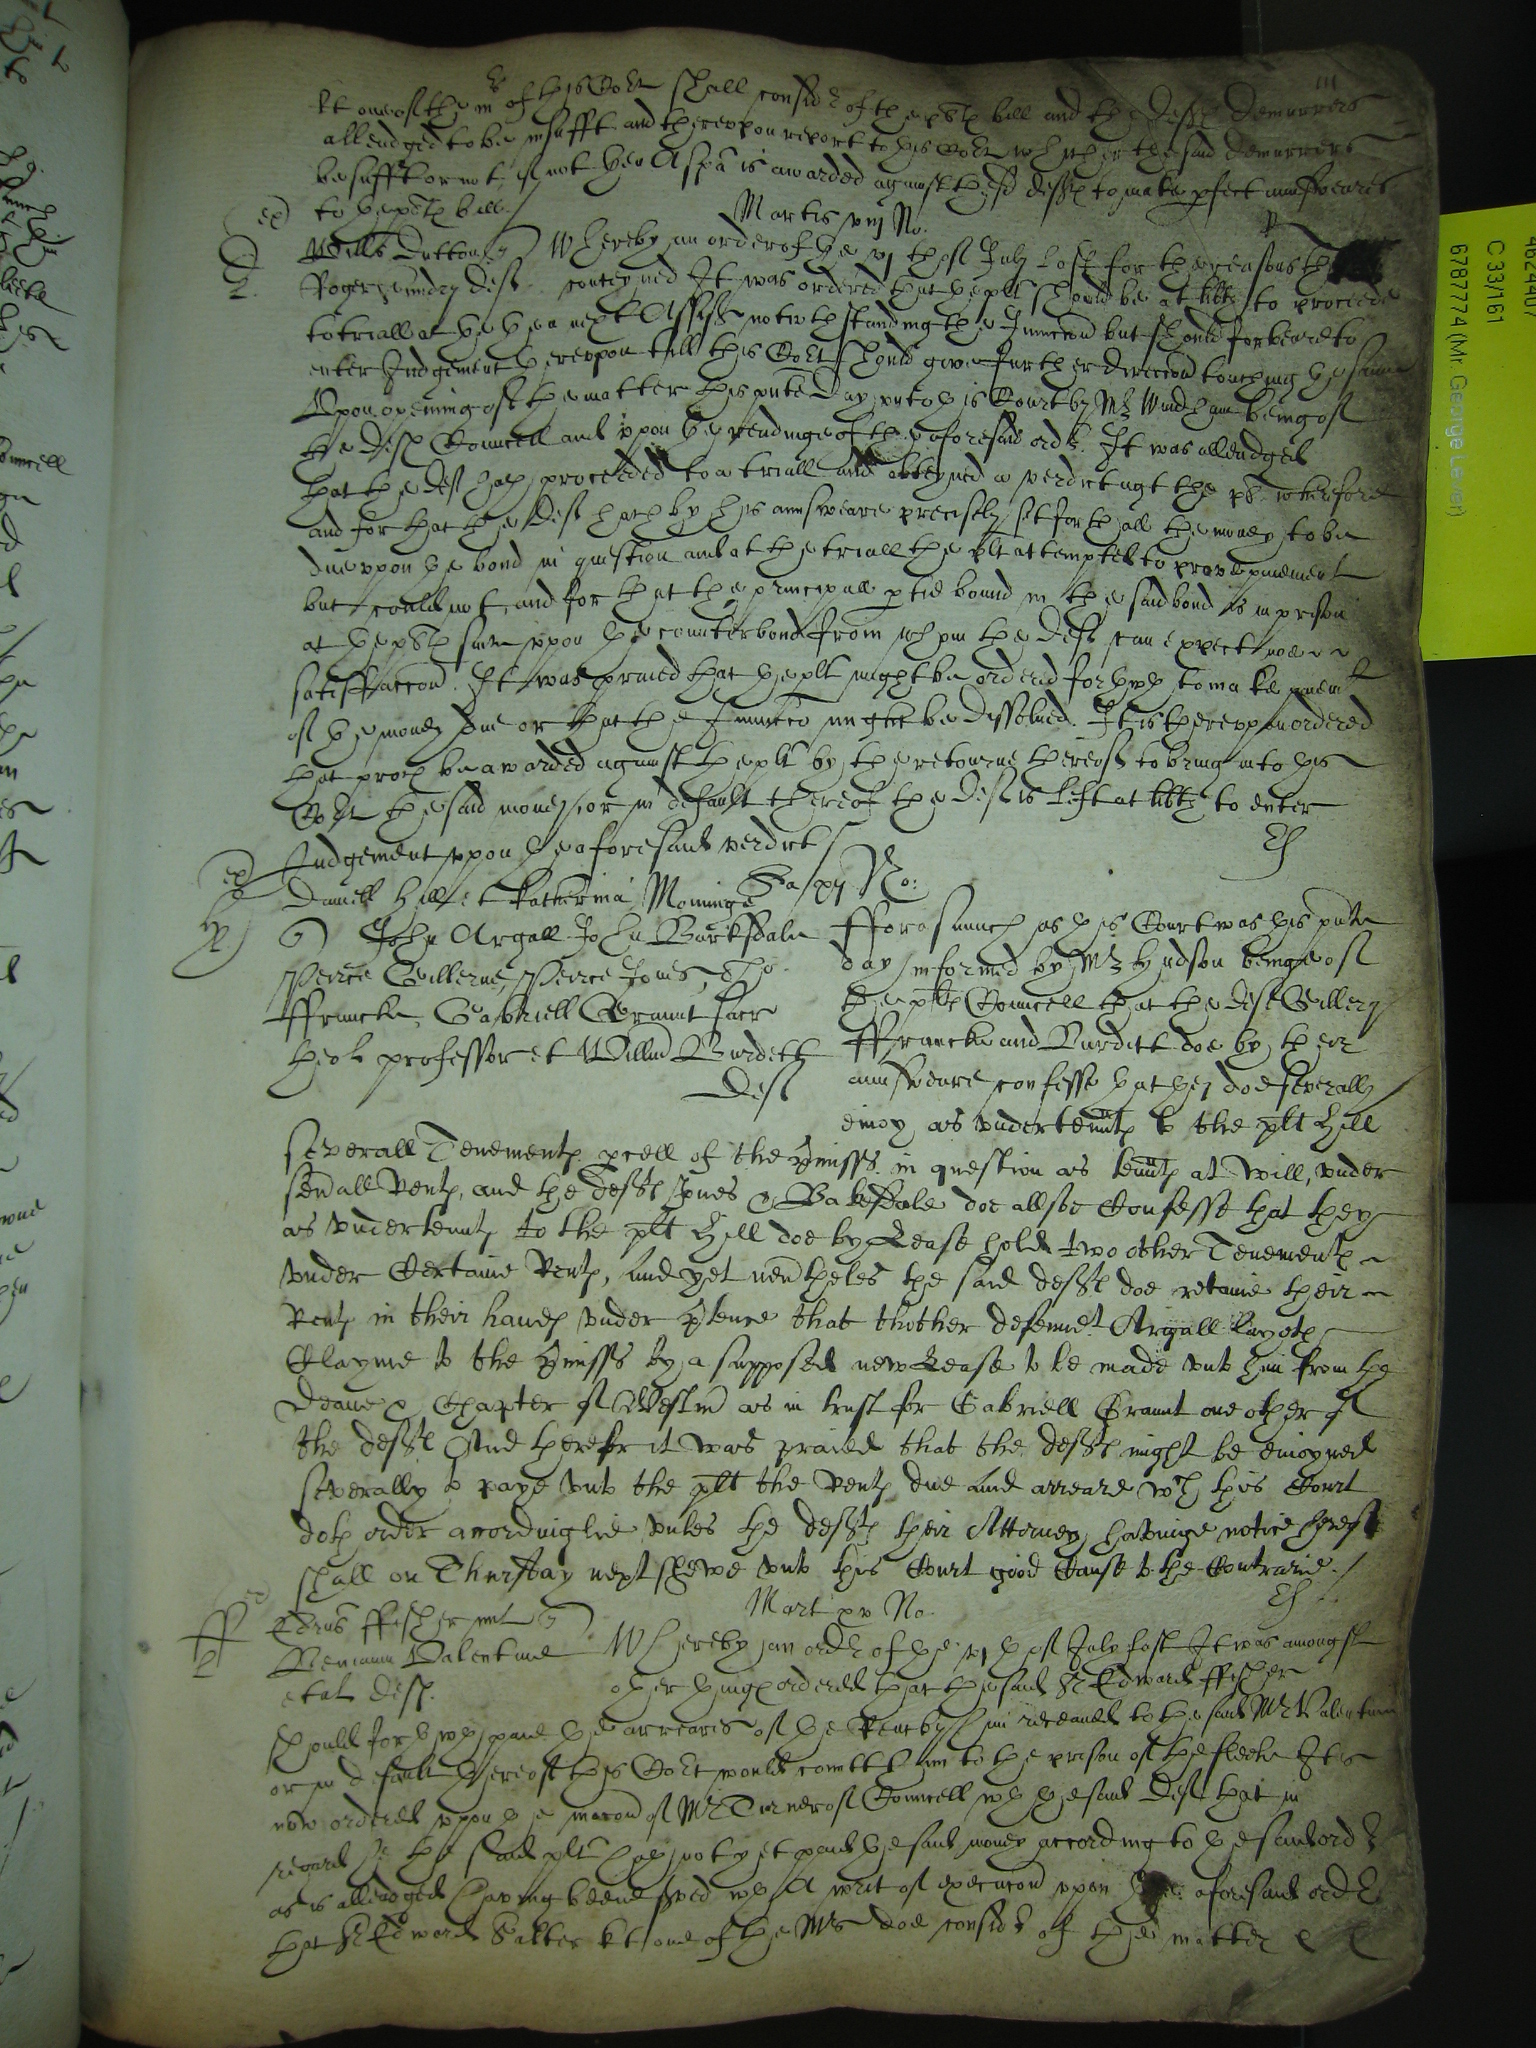 111
kt one of the mrs of this Cort shall considr of the pltes bill and the deftes demurrers
alleadged to be insufft and thereupon report to this Cort whether the said demurrers
be suffit or not, if not then A spa is awarded against the sd deftes to make pfect answeares
to the pltes bill /
Martis viij No.
Willm Dutton
Roger deft
Whereby an order of the vj th of July last for the reasons
conteyned It was ordered that the plt should be at libtie to proceede
to triall at the then next Assises notwthstanding the Iniuncon but should forbeare to
enter Iudgement thereupon till this Cort should give further direccon touching the same
Upon opening of the matter this pnte day unto this Court by Mr Windham being of
the deftes Councell and upon the reading of the aforesaid ordr. It was alleadged
that the deft hath proceeded to a triall and obteyned a verdict agt the plt wherefore
and for that the deft hath by his answeare precisely set forth all the money to be
due uppon the bond in question and at the triall the plt attempted to prove paiement
but could not, and for that the principall ptie bound in the said bond is in prison
at the pltes suite uppon the counterbond from whom the deft can expect noe
satisffaccon. It was praied that the plt might be ordered forthwth to make paiemt
of the money due or that the Iniunccon might be dissolved. It is thereuppon ordered
that proces be awarded against the plt by the retourne thereof to bring into this
Cort the said money, or in default thereof the deft is left at libtie to enter
Iudgement uppon the aforesaid verdict /
ex
Sa/ xij No:
Daniell Hill et Katherina Monninge
John Argall John Barksdale
Peirce Peirce Jones,
ffrancke, Gabriell Graunt sacre
theol professor et Willm Burdett
deft
fforasmuch as this Court was this pnte
day informed by Mr Hudson being of
the pltes Councell that the deft
ffrancke and Burditt doe by their
answeare confesse that they doe severally
enioy as undertenntes to the plt Hill
severall Tenementes pcell of the pmisses in question as tenntes at will, under
sevall Rentes, and the deftes Jones & Baksdale doe allsoe Confesse that they
as undertenntes to the plt Hill doe by Lease hold two other Tenementes
under Certaine Rentes, and yet nevtheles the said deftes doe retaine their
Rentes in their handes under ptence that thother defendt Argall layeth
Clayme to the pmisses by a supposed new Lease to be made unto him from the
Deane & Chapter of Westmr as in trust for Gabriell Graunt one other of
the deftes And therefore it was praied that the deftes might be enioyned
severally to paye unto the plt the Rentes due and arreare wch this Court
doth order accordinglie unles the deftes their Attorney havinge notice hereof
shall on Thursday next shewe unto this Court good Cause to the Contrarie. /
ex
Mart xv No.
Edrus ffisher mil
Beniamin Valentine
et al deft.
Whereby an ordr of the vj th of July last It was amongst
other thinges ordered that the said Sr Edward ffisher
should forthwth paie the arreares of the Rent by him receaved to the said Mr Valentine
or in default thereof this Cort would comitt him to the prison of the fleete It is
now ordered uppon the mocon of Mr Turner of Councell wth the said deft that in
regard the said plt hath not yet paid the said money according to the said ordr
as is alleadged having beene served wth A writ of execucon uppon the aforesaid ordr
that Sr Edward Salter kt one of the Mrs doe considr of the matter &
462440/
C 33/161
6787774 (Mr. George Lever)